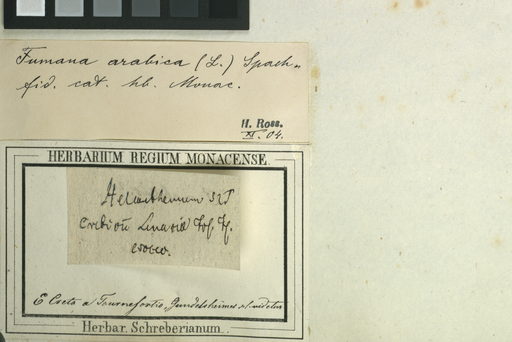 Fumana arabica (L.) Spach.
fid. cat. hb. Monac.
H. Ross.
XI. 04.
HERBARIUM REGIUM MONACENSE.
Helianthemum
Linariæ
croceo.
E Creta a Tournefortio, Gundelsheimer
Herbar. Schreberianum.